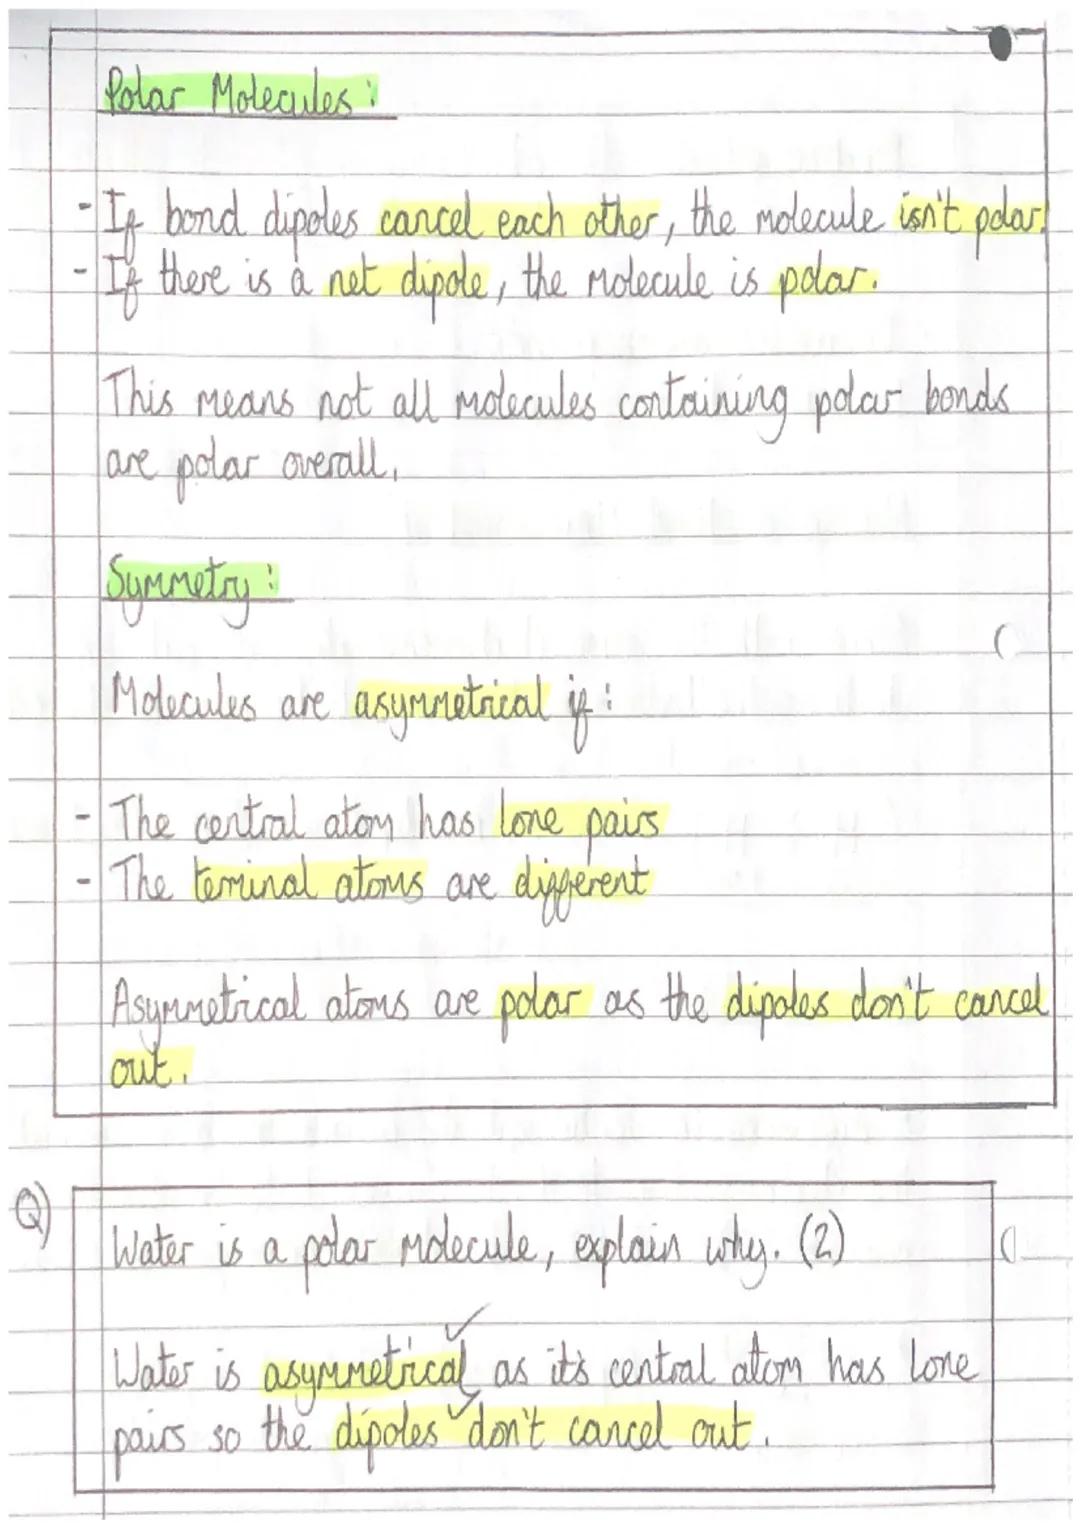 Polar Molecules:
- If bond dipoles cancel each other, the molecule isn't polar.
- If there is a net dipole, the molecule is polar.
This means not all molecules containing polar bonds
are polar overall.
Symmetry:
Molecules are asymmetrical if:
- The central atom has lone pairs
- The terminal atoms are different
Asymmetrical atoms are polar as the dipoles don't cancel
out.
Q)
Water is a polar molecule, explain why. (2)
Water is asymmetrical as it's central atom has lone
pairs so the dipoles don't cancel out.